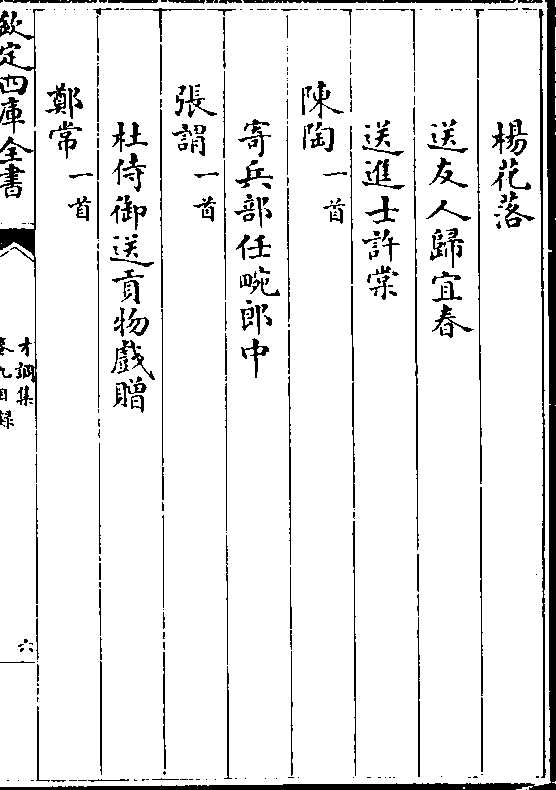 楊花落
送友人歸宜春
送進士許棠
陳陶一首
寄兵部任畹郎中
張謂一首
杜侍御送貢物戲贈
鄭常一首
欽定四庫全書
才調集
卷九目録
六